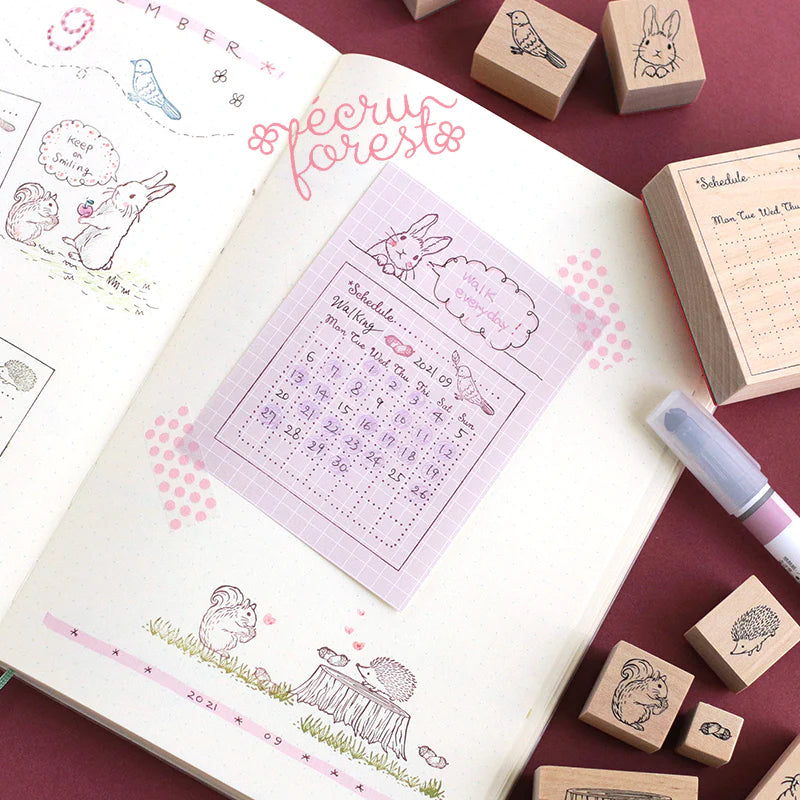 9
EMBER
écru
forest
Keep
on
Smiling
Walk
everyday!
*Schedule
Walking
2021 09
Mon Tue Wed Thu Fri Sat Sun
1 2 3 4 5
6 7 8 9 10 11 12
13 14 15 16 17 18 19
20 21 22 23 24 25 26
27 28 29 30
2021 * 09
*Schedule
Mon Tue Wed Thu